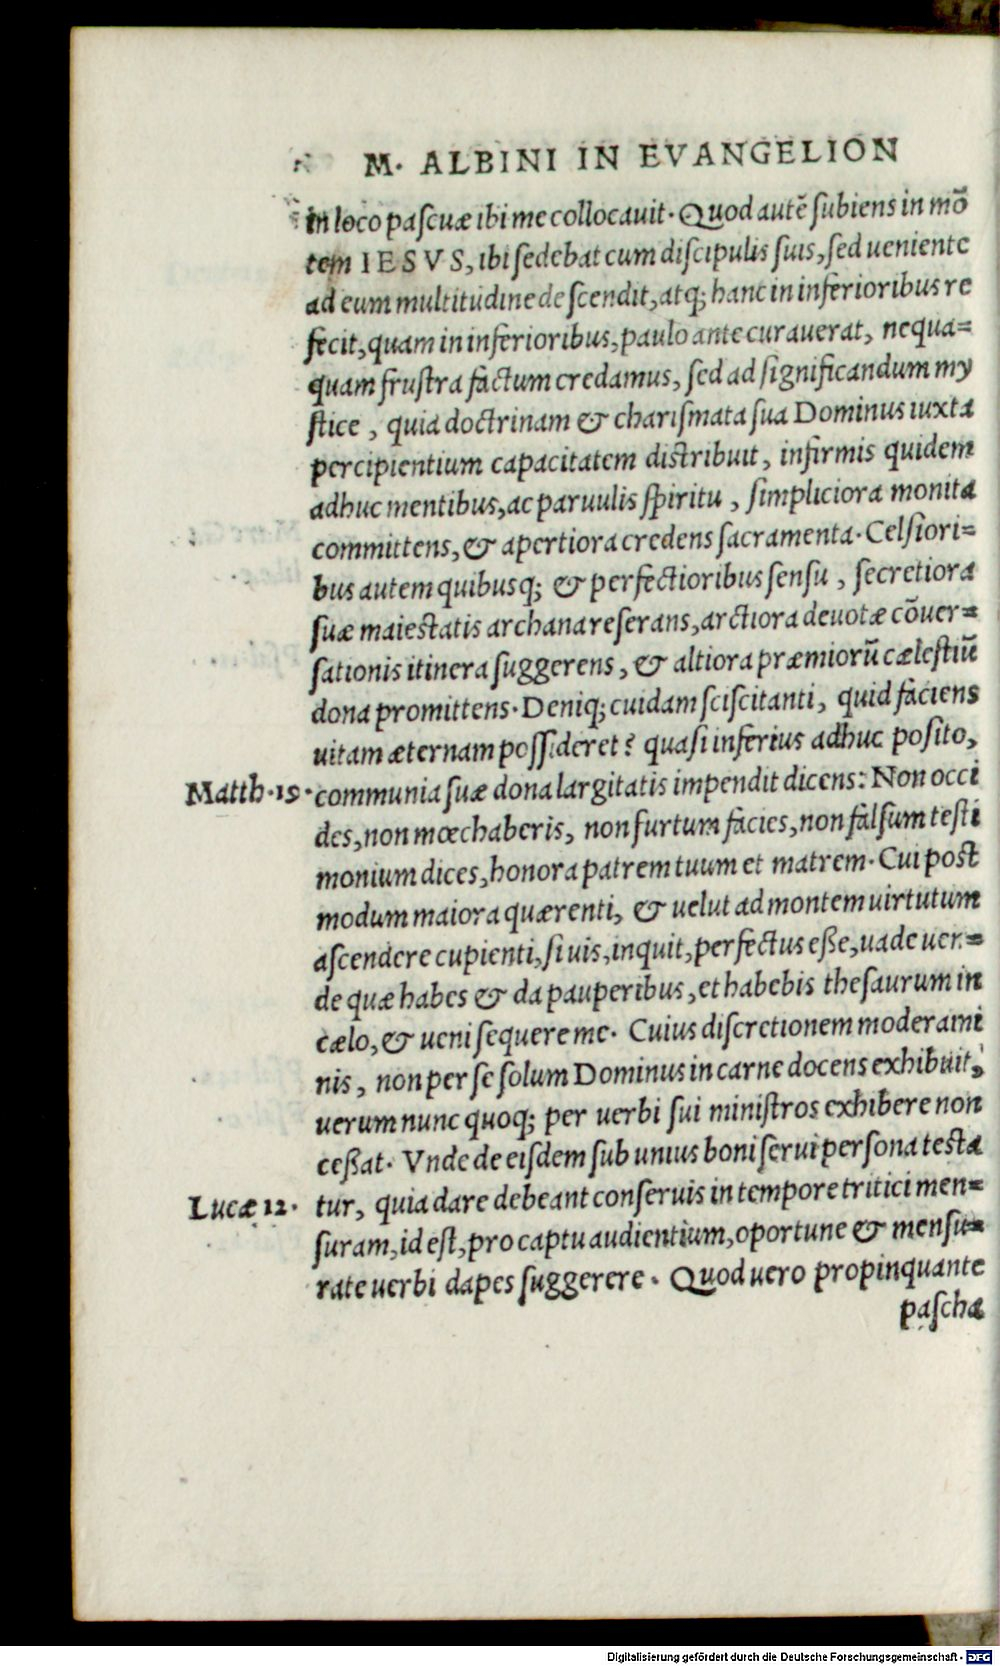 M. ALBINI IN EVANGELION
in loco pascuæ ibi me collocauit. Quod autē subiens in mō
tem IESVS, ibi sedebat cum discipulis suis, sed ueniente
ad eum multitudine descendit, atq; hanc in inferioribus re
fecit, quam in inferioribus, paulo ante curauerat, nequa=
quam frustra factum credamus, sed ad significandum my
stice, quia doctrinam & charismata sua Dominus iuxta
percipientium capacitatem distribuit, infirmis quidem
adhuc mentibus, ac paruulis spiritu, simpliciora monita
committens, & apertiora credens sacramenta. Celsiori=
bus autem quibusq; & perfectioribus sensu, secretiora
suæ maiestatis archana reserans, arctiora deuotæ cōuer=
sationis itinera suggerens, & altiora præmiorū cælestiū
dona promittens. Deniq; cuidam sciscitanti, quid faciens
uitam æternam possideret? quasi inferius adhuc posito,
Matth. 19. communia suæ dona largitatis impendit dicens: Non occi
des, non mœchaberis, non furtum facies, non falsum testi
monium dices, honora patrem tuum et matrem. Cui post
modum maiora quærenti, & uelut ad montem uirtutum
ascendere cupienti, si uis, inquit, perfectus esse, uade uen=
de quæ habes & da pauperibus, et habebis thesaurum in
cælo, & ueni sequere me. Cuius discretionem moderami
nis, non per se solum Dominus in carne docens exhibuit,
uerum nunc quoq; per uerbi sui ministros exhibere non
cessat. Vnde de eisdem sub unius boni serui persona testa
Lucæ 12. tur, quia dare debeant conseruis in tempore tritici men=
suram, id est, pro captu audientium, oportune & mensu=
rate uerbi dapes suggerere. Quod uero propinquante
pascha
Digitalisierung gefördert durch die Deutsche Forschungsgemeinschaft - DFG